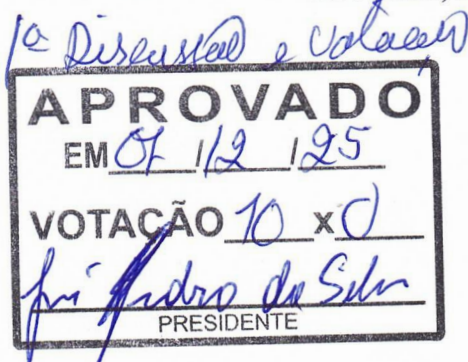 1ª Discussão e Votação
APROVADO
EM 01/12/25
VOTAÇÃO 10 x 0
da Silva
PRESIDENTE